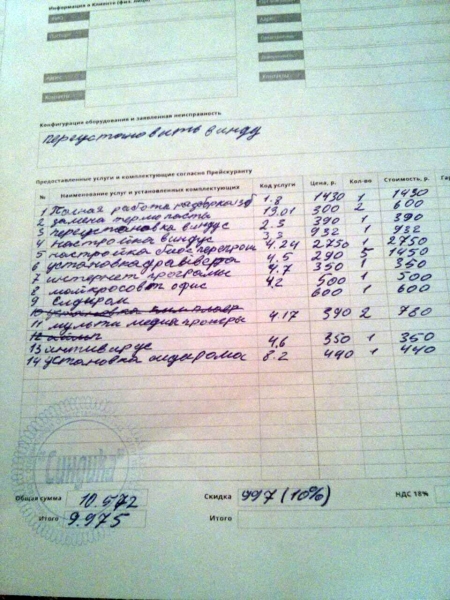 Информация о Клиенте (физ. лицо)
Адрес
Контакты
Конфигурация оборудования и заявленная неисправность
переустановить винду
Предоставленные услуги и комплектующие согласно Прейскуранту
№ Наименование услуг и установленных комплектующих Код услуги Цена, р. Кол-во Стоимость, р.
1 Полная работа 1.8 1430 1 1430
2 замена термопасты 19.01 300 2 600
3 переустановка виндус 2.3 390 1 390
4 настройка виндус 3.3 932 1 932
5 настройка биос 4.24 2750 1 2750
6 установка драйвера 4.5 290 5 1450
7 интернет програмы 4.7 350 1 350
8 майкрософт офис 4.2 500 1 500
9 600 1 600
10 установка
11 мульти медиа 4.17 390 2 780
12
13 антивирус 4.6 350 1 350
14 установка 8.2 440 1 440
"Синдика"
Общая сумма 10.972 Скидка 997 (10%) НДС 18%
Итого 9.975 Итого